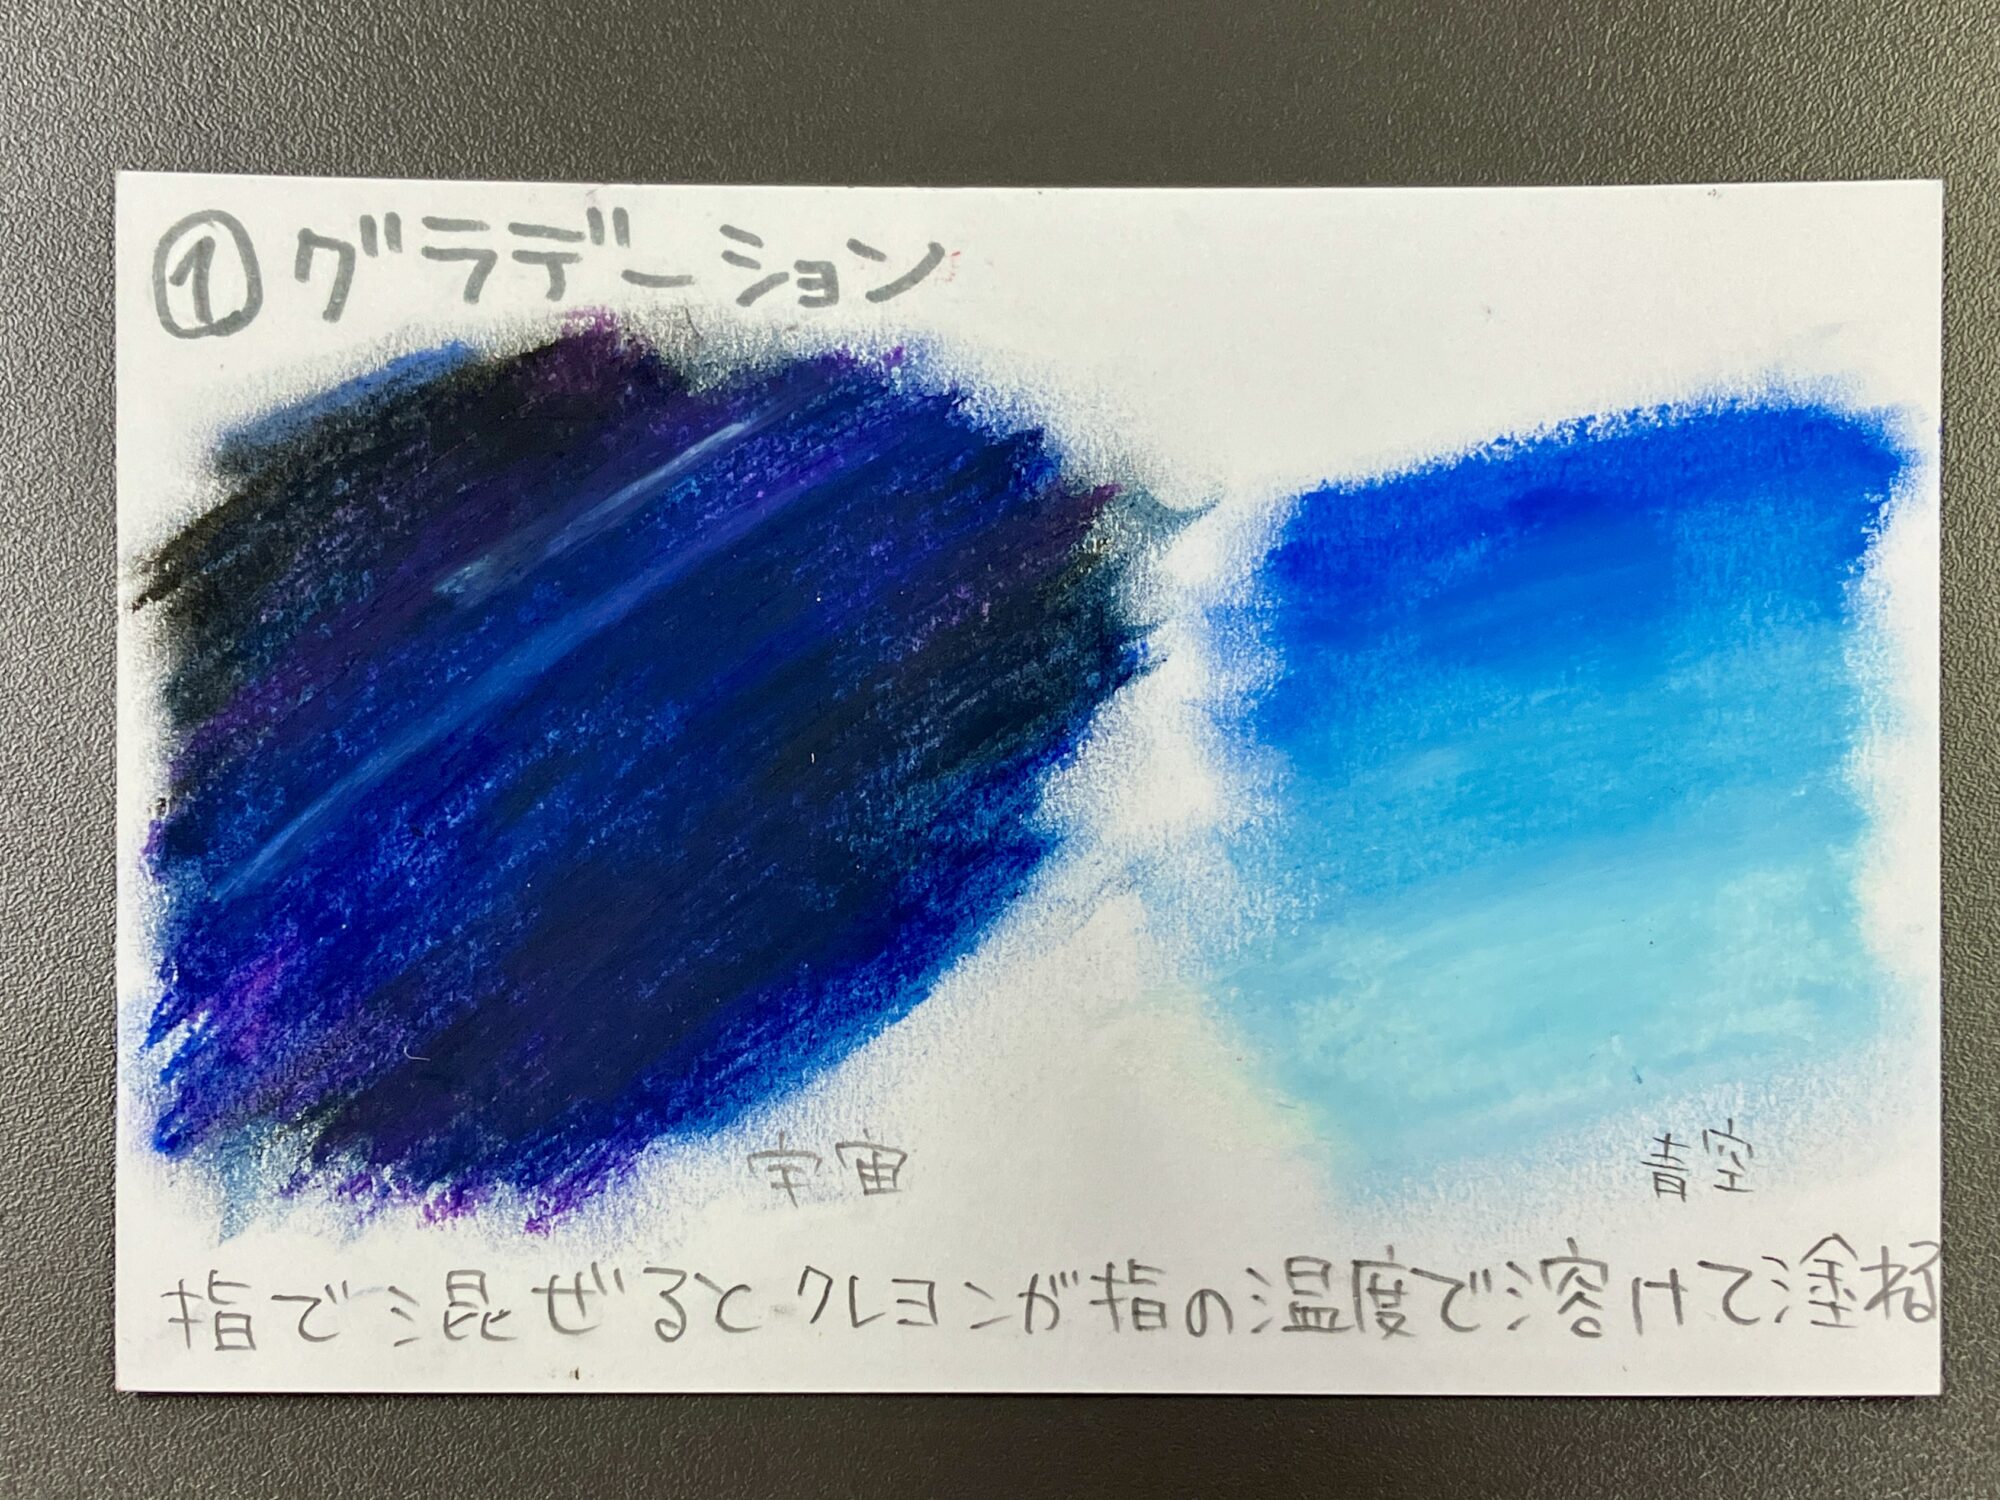 ①グラデーション
宇宙
青空
指で混ぜるとクレヨンが指の温度で溶けて塗れる